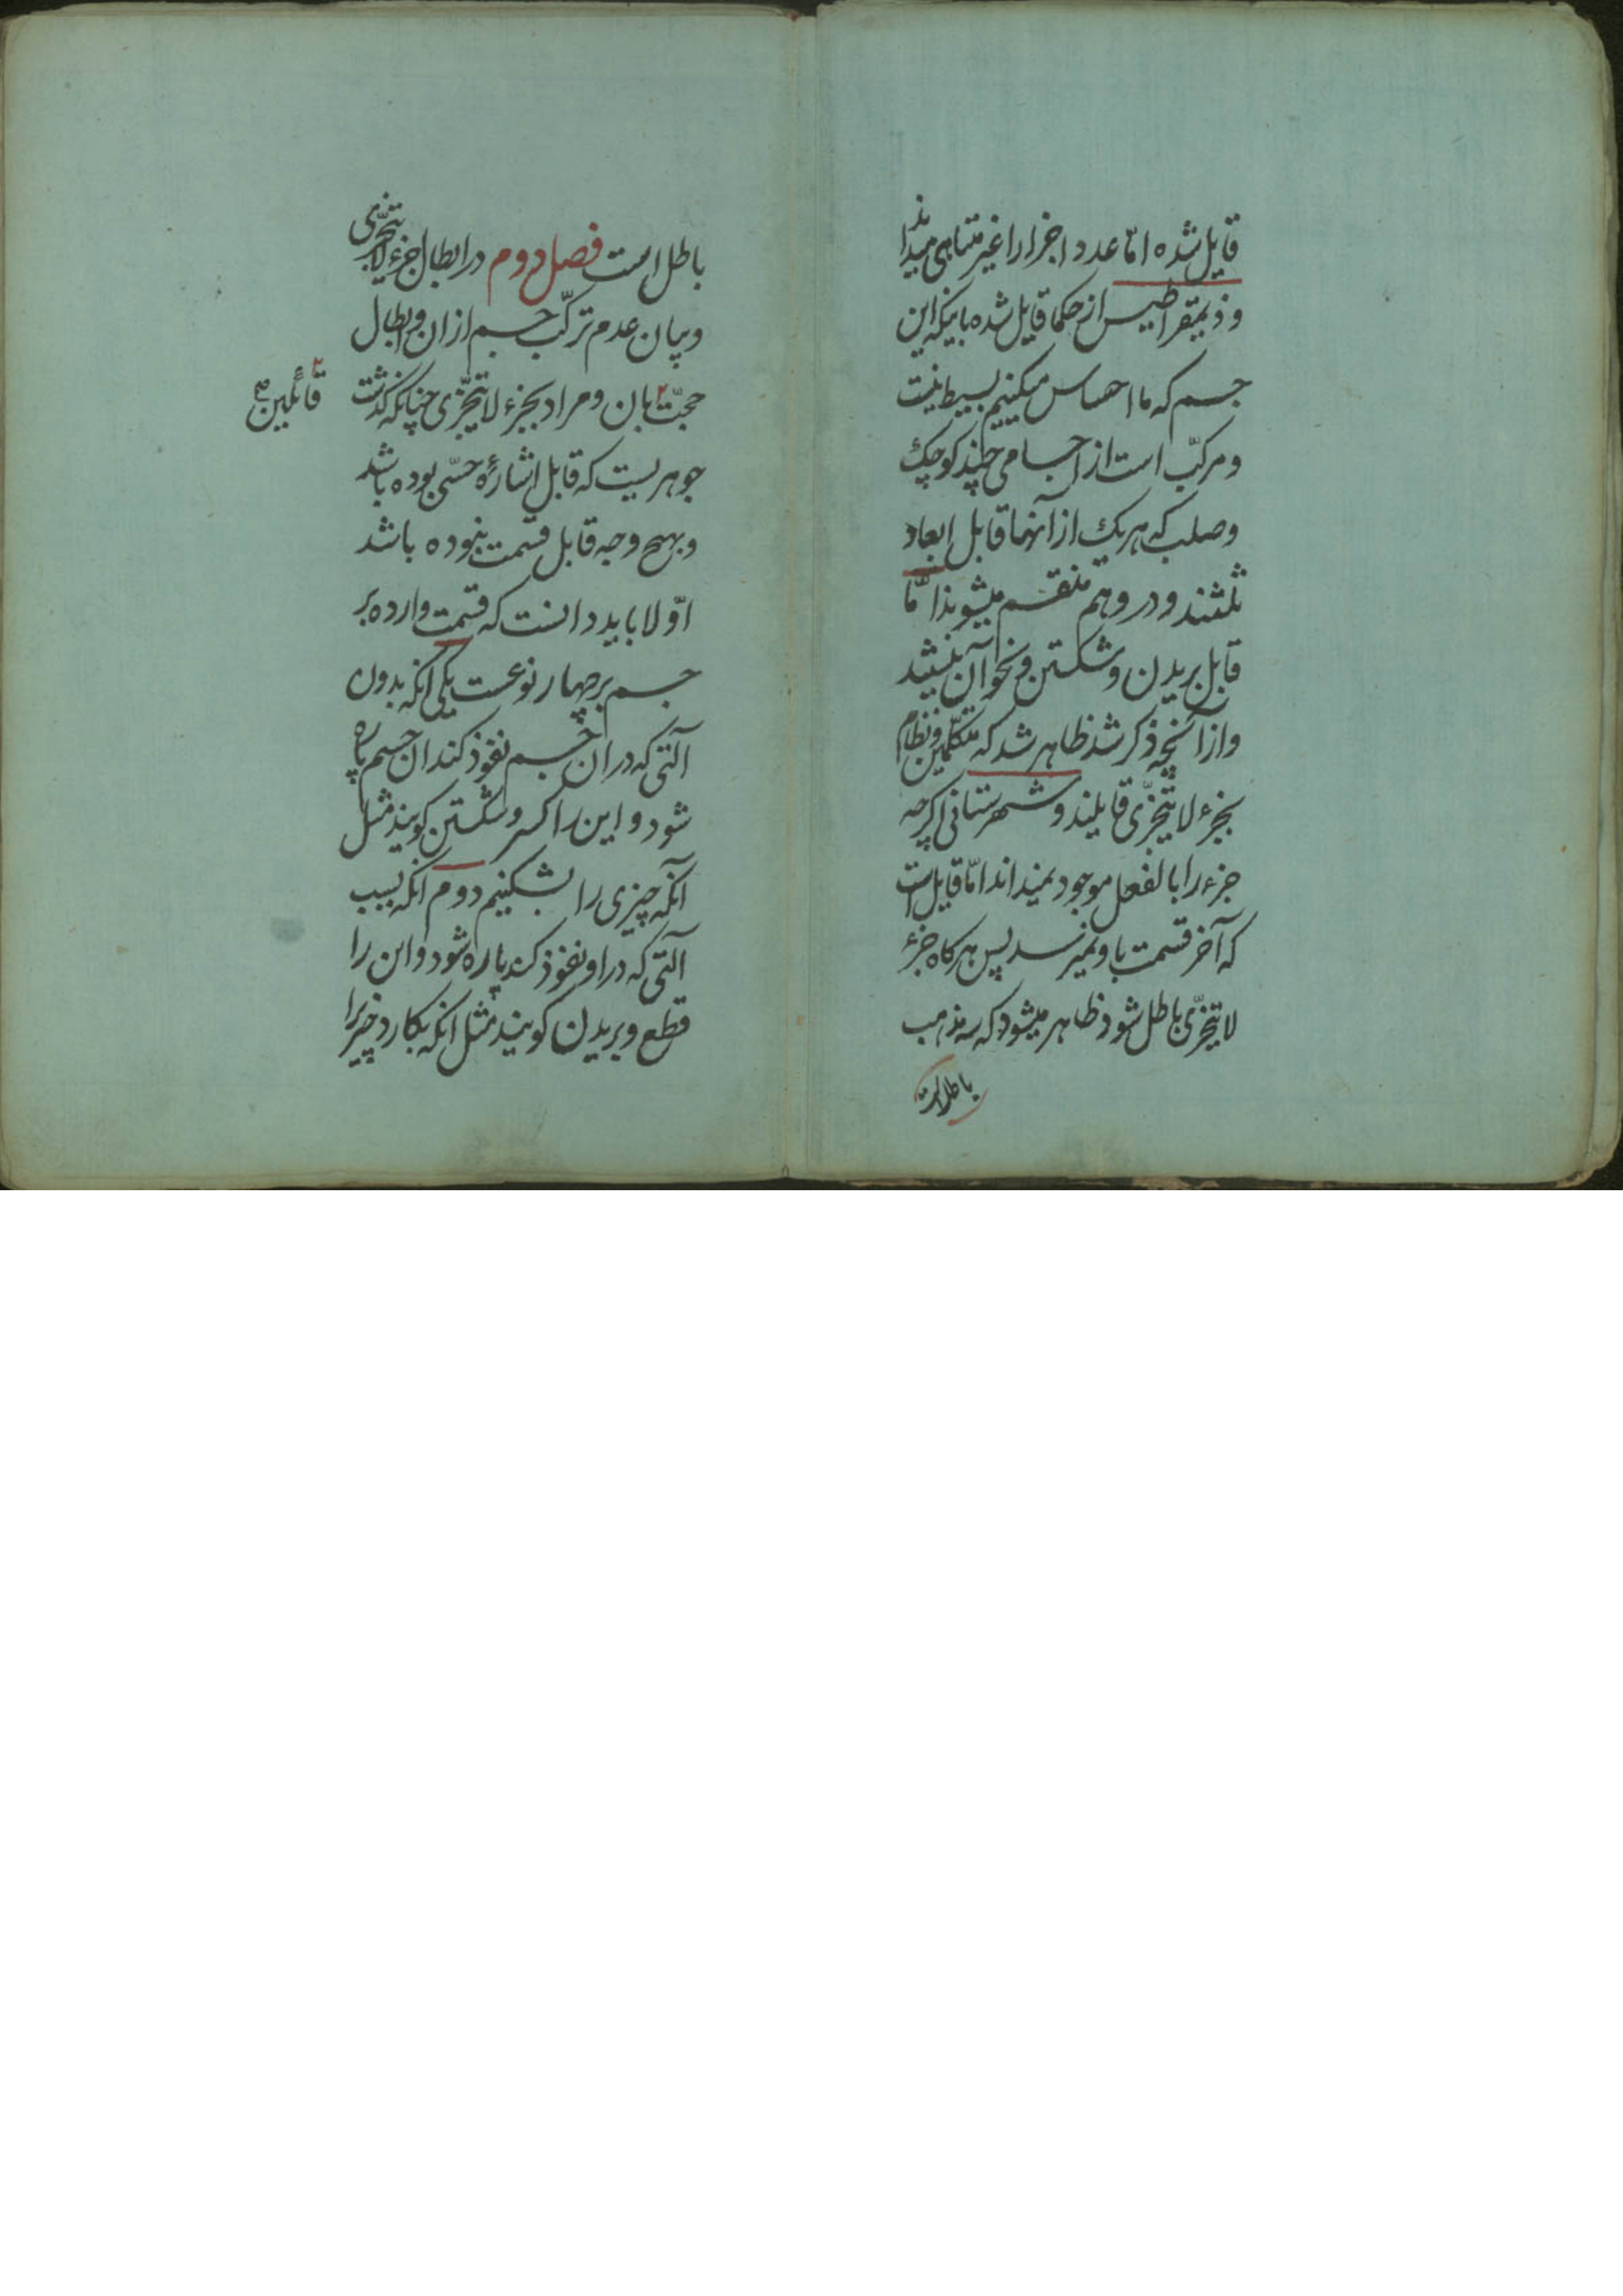 قایل شده امّا عدد اجزا را غیر متناهی میداند
و ذیمقراطیس از حکما قایل شده باینکه این
جسم که ما احساس میکنیم بسیط نیست
و مرکّب است از اجسامی چند کوچک
و صلب که هر یک از آنها قابل ابعاد
ثلثند و در وهم منقسم میشوند امّا
قابل بریدن و شکستن و نحو آن نیستند
و از آنچه ذکر شد ظاهر شد که متکلّمین و نظام
بجزء لا یتجزّی قایلند و شهرستانی اگرچه
جزء را بالفعل موجود نمیداند امّا قایل است
که آخر قسمت باو میرسد پس هرکاه جزء
لا یتجزّی باطل شود ظاهر میشود که سه مذهب
باطلست
باطل است فصل دوم در ابطال جزء لا یتجزّی
و بیان عدم ترکّب جسم از ان و ابطال
حجّت بان و مراد بجزء لا یتجزّی چنانکه گذشت
قائلین صح
جوهریست که قابل اشارهٔ حسّی بوده باشد
و بهیچ وجه قابل قسمت نبوده باشد
اوّلا باید دانست که قسمت وارده بر
جسم بر چهار نوعست یکی انکه بدون
آلتی که در ان جسم نفوذ کند ان جسم پاره
شود و این را کسر و شکستن کویند مثل
آنکه چیزی را بشکنیم دوم انکه بسبب
آلتی که در او نفوذ کند پاره شود و این را
قطع و بریدن کویند مثل انکه بکارد چیزیرا